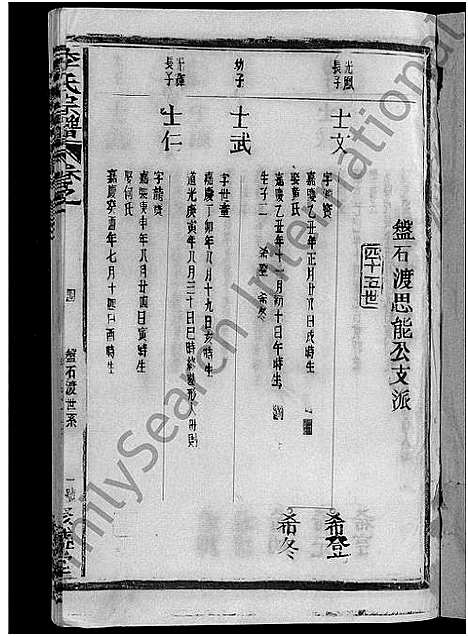 盤石渡思能公支派
四十五世
光
長子
士文
嘉慶乙丑年正月廿八日戌時生
娶黃氏
嘉慶乙丑年十月初十日午時生
生子二 希登 希冬
希登
希冬
幼子
士武
字世
嘉慶丁卯年八月十九日亥時生
道光庚寅年八月三十日巳時終
光
長子
士仁
字龍
嘉慶庚申年八月廿四日寅時生
娶何氏
嘉慶癸酉年七月十四日酉時生
李氏宗譜
盤石渡世系
FamilySearch International